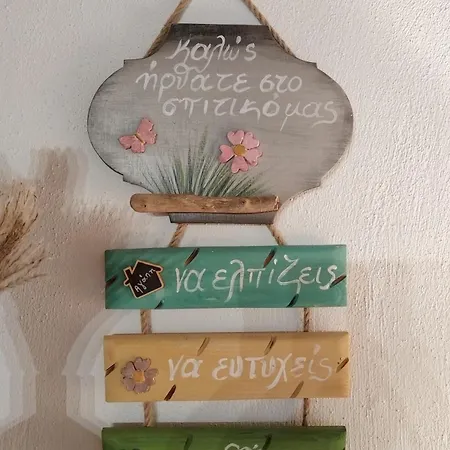 Καλώς
ήρθατε στο
σπιτικό μας
Αγάπη
να ελπίζεις
να ευτυχείς